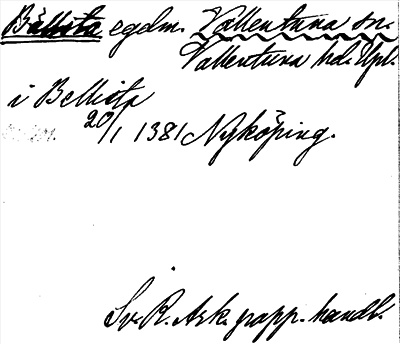 Bällsta egdm. Vallentuna sn.
Vallentuna hd. Upl.
i Bellista
20/1 1381 Nyköping.
Sv. R. Ark. papp. handl.